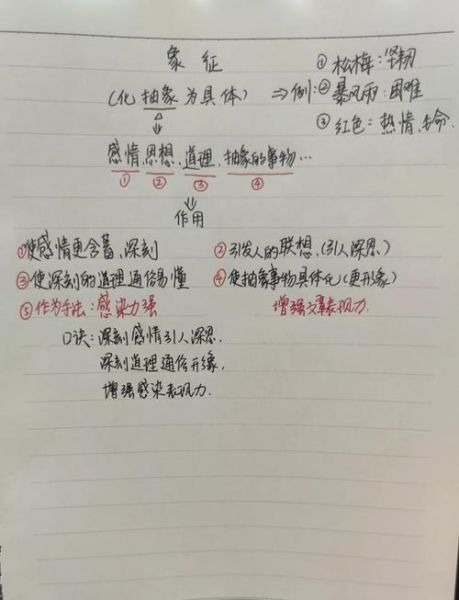 象征
① 松梅：坚韧
(化抽象为具体) ⇒ 例：② 暴风雨：困难
③ 红色：热情、生命
感情、思想、道理、抽象的事物…
① ② ③ ④
作用
①使感情更含蓄、深刻 ②引发人的联想、(引人深思)
③使深刻的道理通俗易懂 ④使抽象事物具体化(更形象)
⑤作为手法：感染力强 增强文章表现力
口诀：深刻感情引人深思、
深刻道理通俗形象，
增强感染表现力.